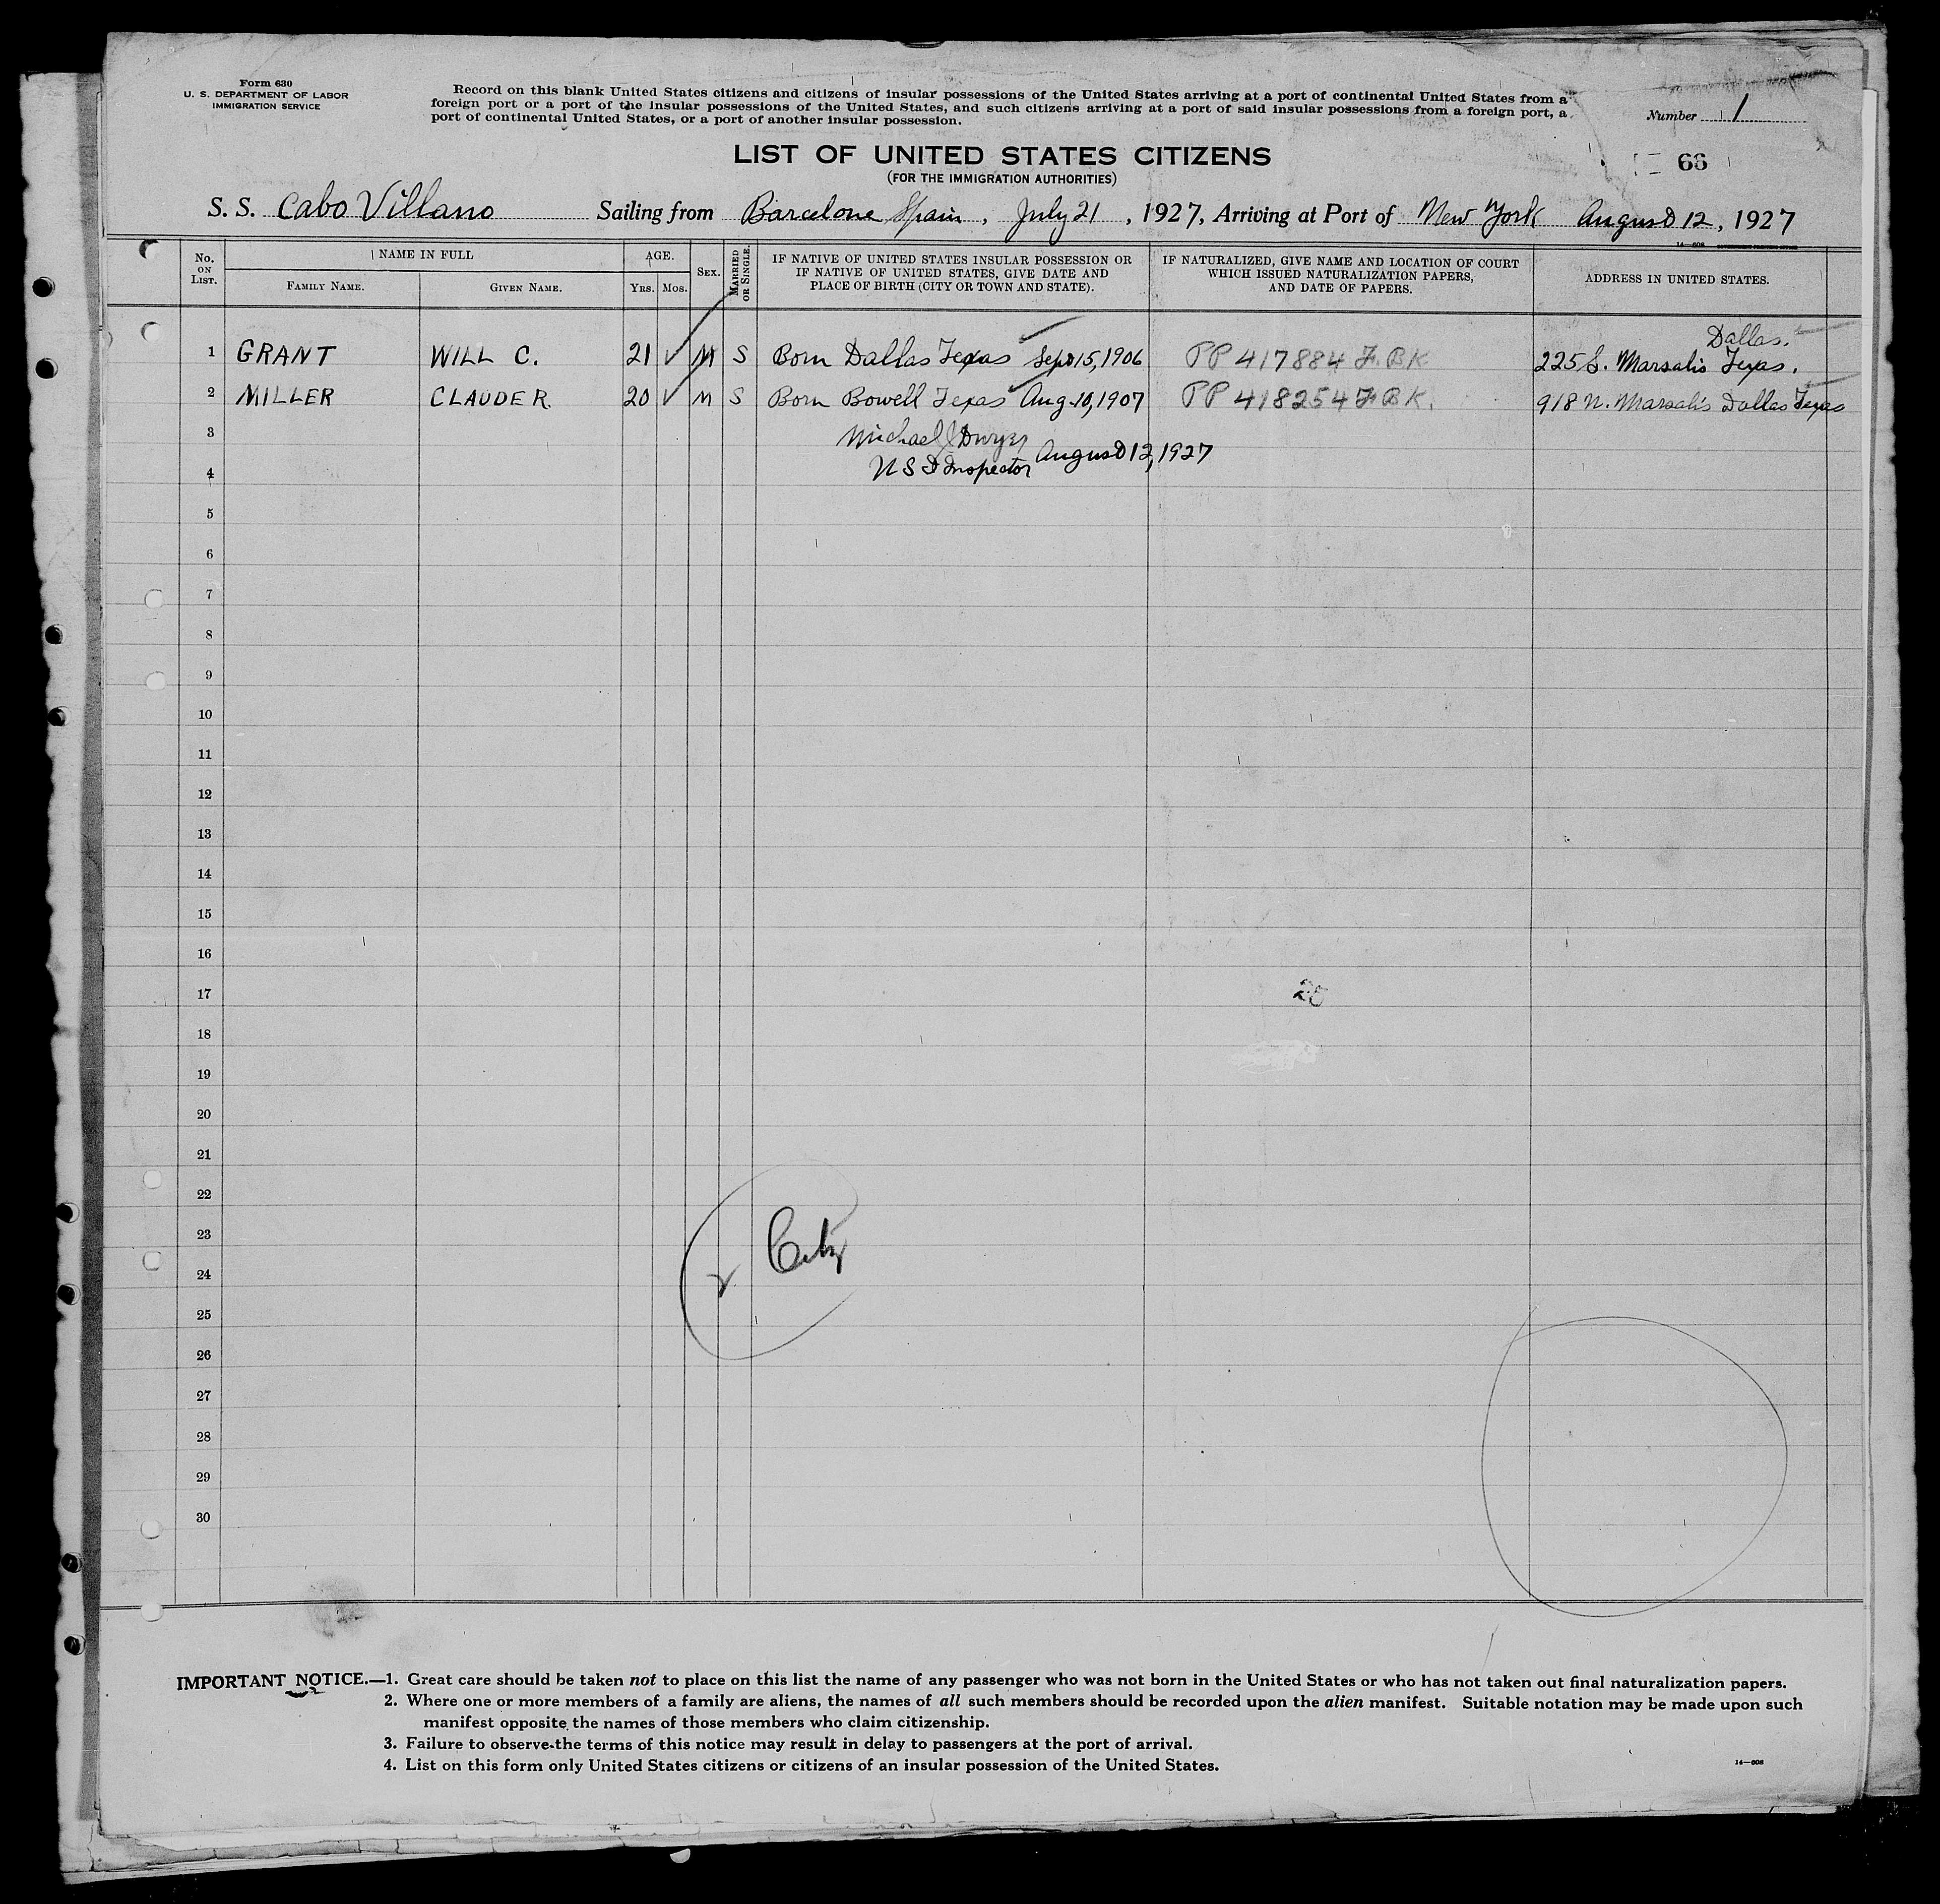 Form 630
U. S. DEPARTMENT OF LABOR
IMMIGRATION SERVICE
Record on this blank United States citizens and citizens of insular possessions of the United States arriving at a port of continental United States from a
foreign port or a port of the insular possessions of the United States, and such citizens arriving at a port of said insular possessions from a foreign port, a
port of continental United States, or a port of another insular possession.
Number 1
LIST OF UNITED STATES CITIZENS
(FOR THE IMMIGRATION AUTHORITIES)
66
S. S. Cabo Villano Sailing from Barcelona Spain, July 21, 1927, Arriving at Port of New York August 12, 1927
14—608
No. ON LIST.
NAME IN FULL
FAMILY NAME.
GIVEN NAME.
AGE.
YRS.
MOS.
SEX.
MARRIED OR SINGLE.
IF NATIVE OF UNITED STATES INSULAR POSSESSION OR
IF NATIVE OF UNITED STATES, GIVE DATE AND
PLACE OF BIRTH (CITY OR TOWN AND STATE).
IF NATURALIZED, GIVE NAME AND LOCATION OF COURT
WHICH ISSUED NATURALIZATION PAPERS,
AND DATE OF PAPERS.
ADDRESS IN UNITED STATES.
Dallas.
1 GRANT WILL C. 21 M S Born Dallas Texas Sept 15, 1906 PP 417884 F.BK 225 S. Marsalis Texas.
2 MILLER CLAUDE R. 20 M S Born Bowell Texas Aug. 10, 1907 PP 418254 F.BK. 918 N. Marsalis Dallas Texas
3 Michael J Dwyer
August 12, 1927
4 U S I Inspector
5
6
7
8
9
10
11
12
13
14
15
16
17
18
19
20
21
22
23
24
25
26
27
28
29
30
IMPORTANT NOTICE.—1. Great care should be taken not to place on this list the name of any passenger who was not born in the United States or who has not taken out final naturalization papers.
2. Where one or more members of a family are aliens, the names of all such members should be recorded upon the alien manifest. Suitable notation may be made upon such
manifest opposite the names of those members who claim citizenship.
3. Failure to observe the terms of this notice may result in delay to passengers at the port of arrival.
4. List on this form only United States citizens or citizens of an insular possession of the United States.
14—608